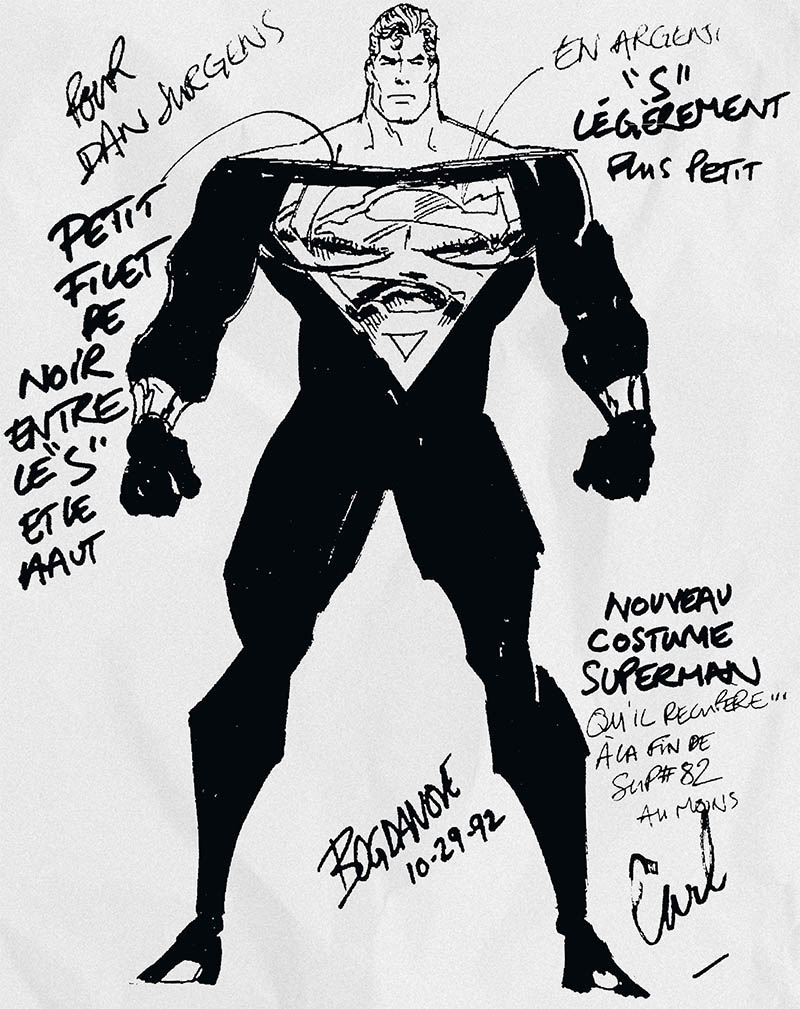 POUR
DAN JURGENS
EN ARGENT
"S"
LÉGÈREMENT
PLUS PETIT
PETIT
FILET
DE
NOIR
ENTRE
LE "S"
ET LE
HAUT
NOUVEAU
COSTUME
SUPERMAN
QU'IL RECUPÈRE...
À LA FIN DE
SUP# 82
AU MOINS
BOGDANOVE
10-29-92
Carl